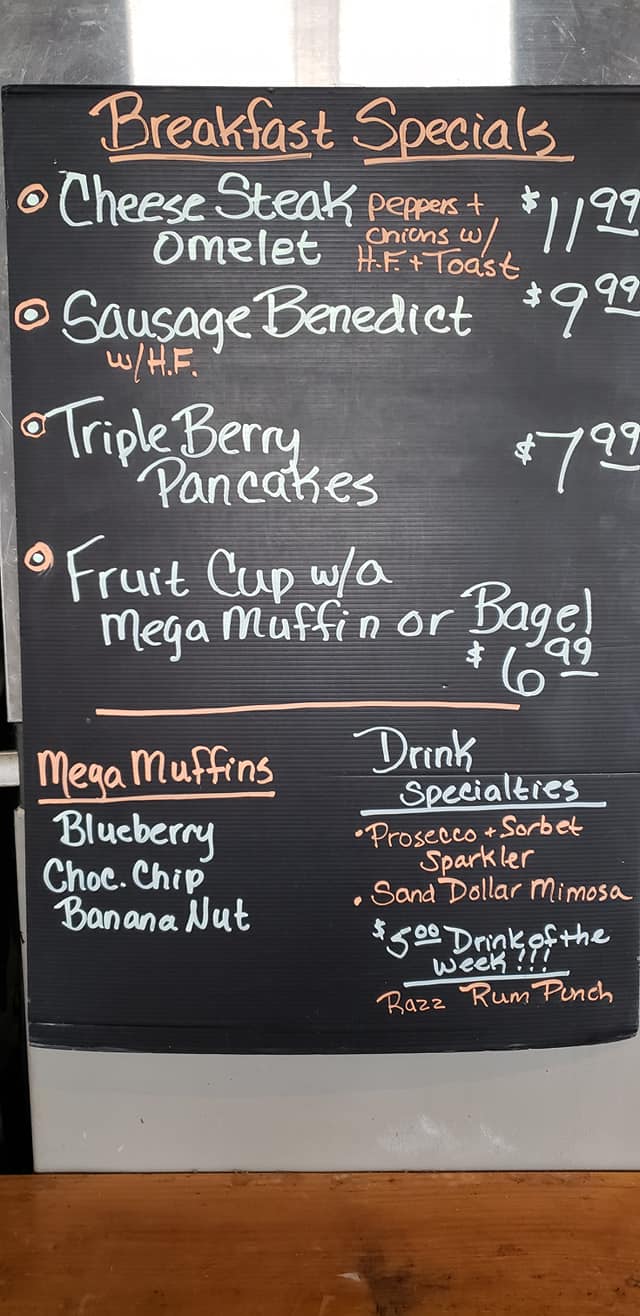 Breakfast Specials
Cheese Steak peppers + $11.99
Omelet onions w/
H.F. + Toast
Sausage Benedict $9.99
w/H.F.
Triple Berry $7.99
Pancakes
Fruit Cup w/a
Mega Muffin or Bagel
$6.99
Mega Muffins
Blueberry
Choc. Chip
Banana Nut
Drink
Specialties
• Prosecco + Sorbet
Sparkler
• Sand Dollar Mimosa
$5.00 Drink of the
Week!!!
Razz Rum Punch